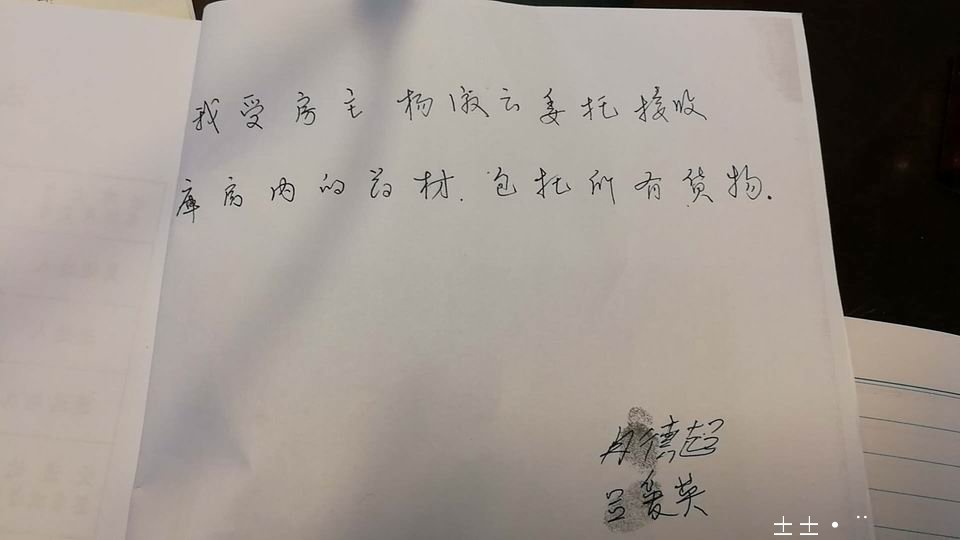 我受房主杨淑云委托接收
庫房内的药材.包托所有货物.
德超
爱英